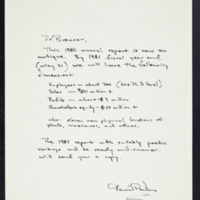 This 1980 annual report is now an
antique. By 1981 fiscal year end
(May 31) we will have the following
dimensions:
Employees — about 700
Sales — $80 million +
Profits — about $3 million
Shareholders equity — $50 million +
also eleven new physical locations of
plants, warehouses, and offices.
The 1981 report with suitably poetic
verbiage will be ready mid-summer.
Will send you a copy.